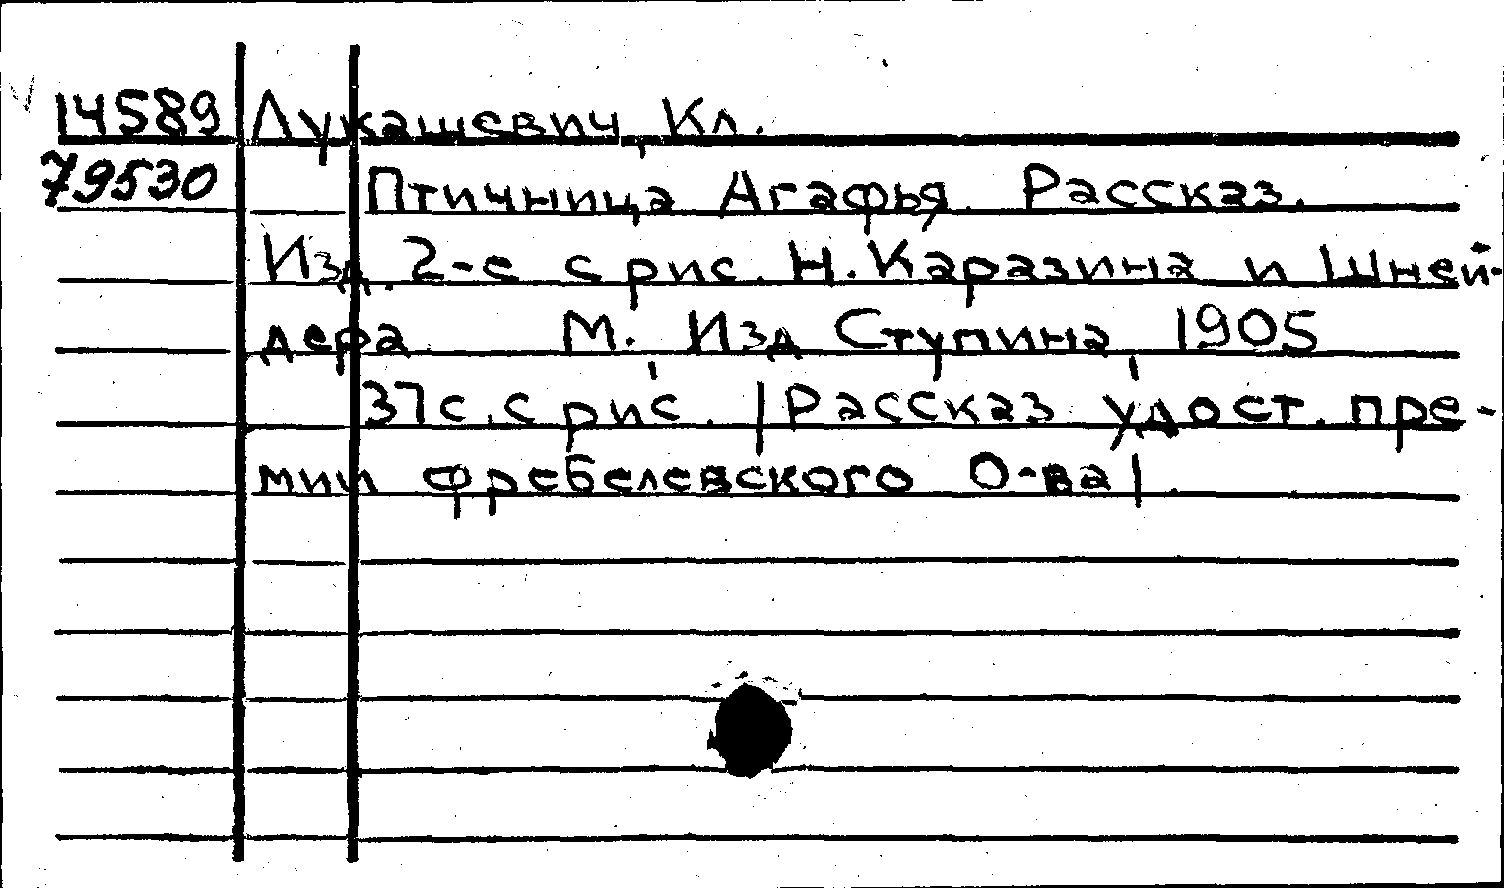 14589 Лукашевич, Кл.
79530 Птичница Агафья. Рассказ.
Изд. 2-е с рис. Н. Каразина и Шней-
дера М., Изд Ступина, 1905
37с. с рис. |Рассказ удост. пре-
мии фребелевского О-ва|.